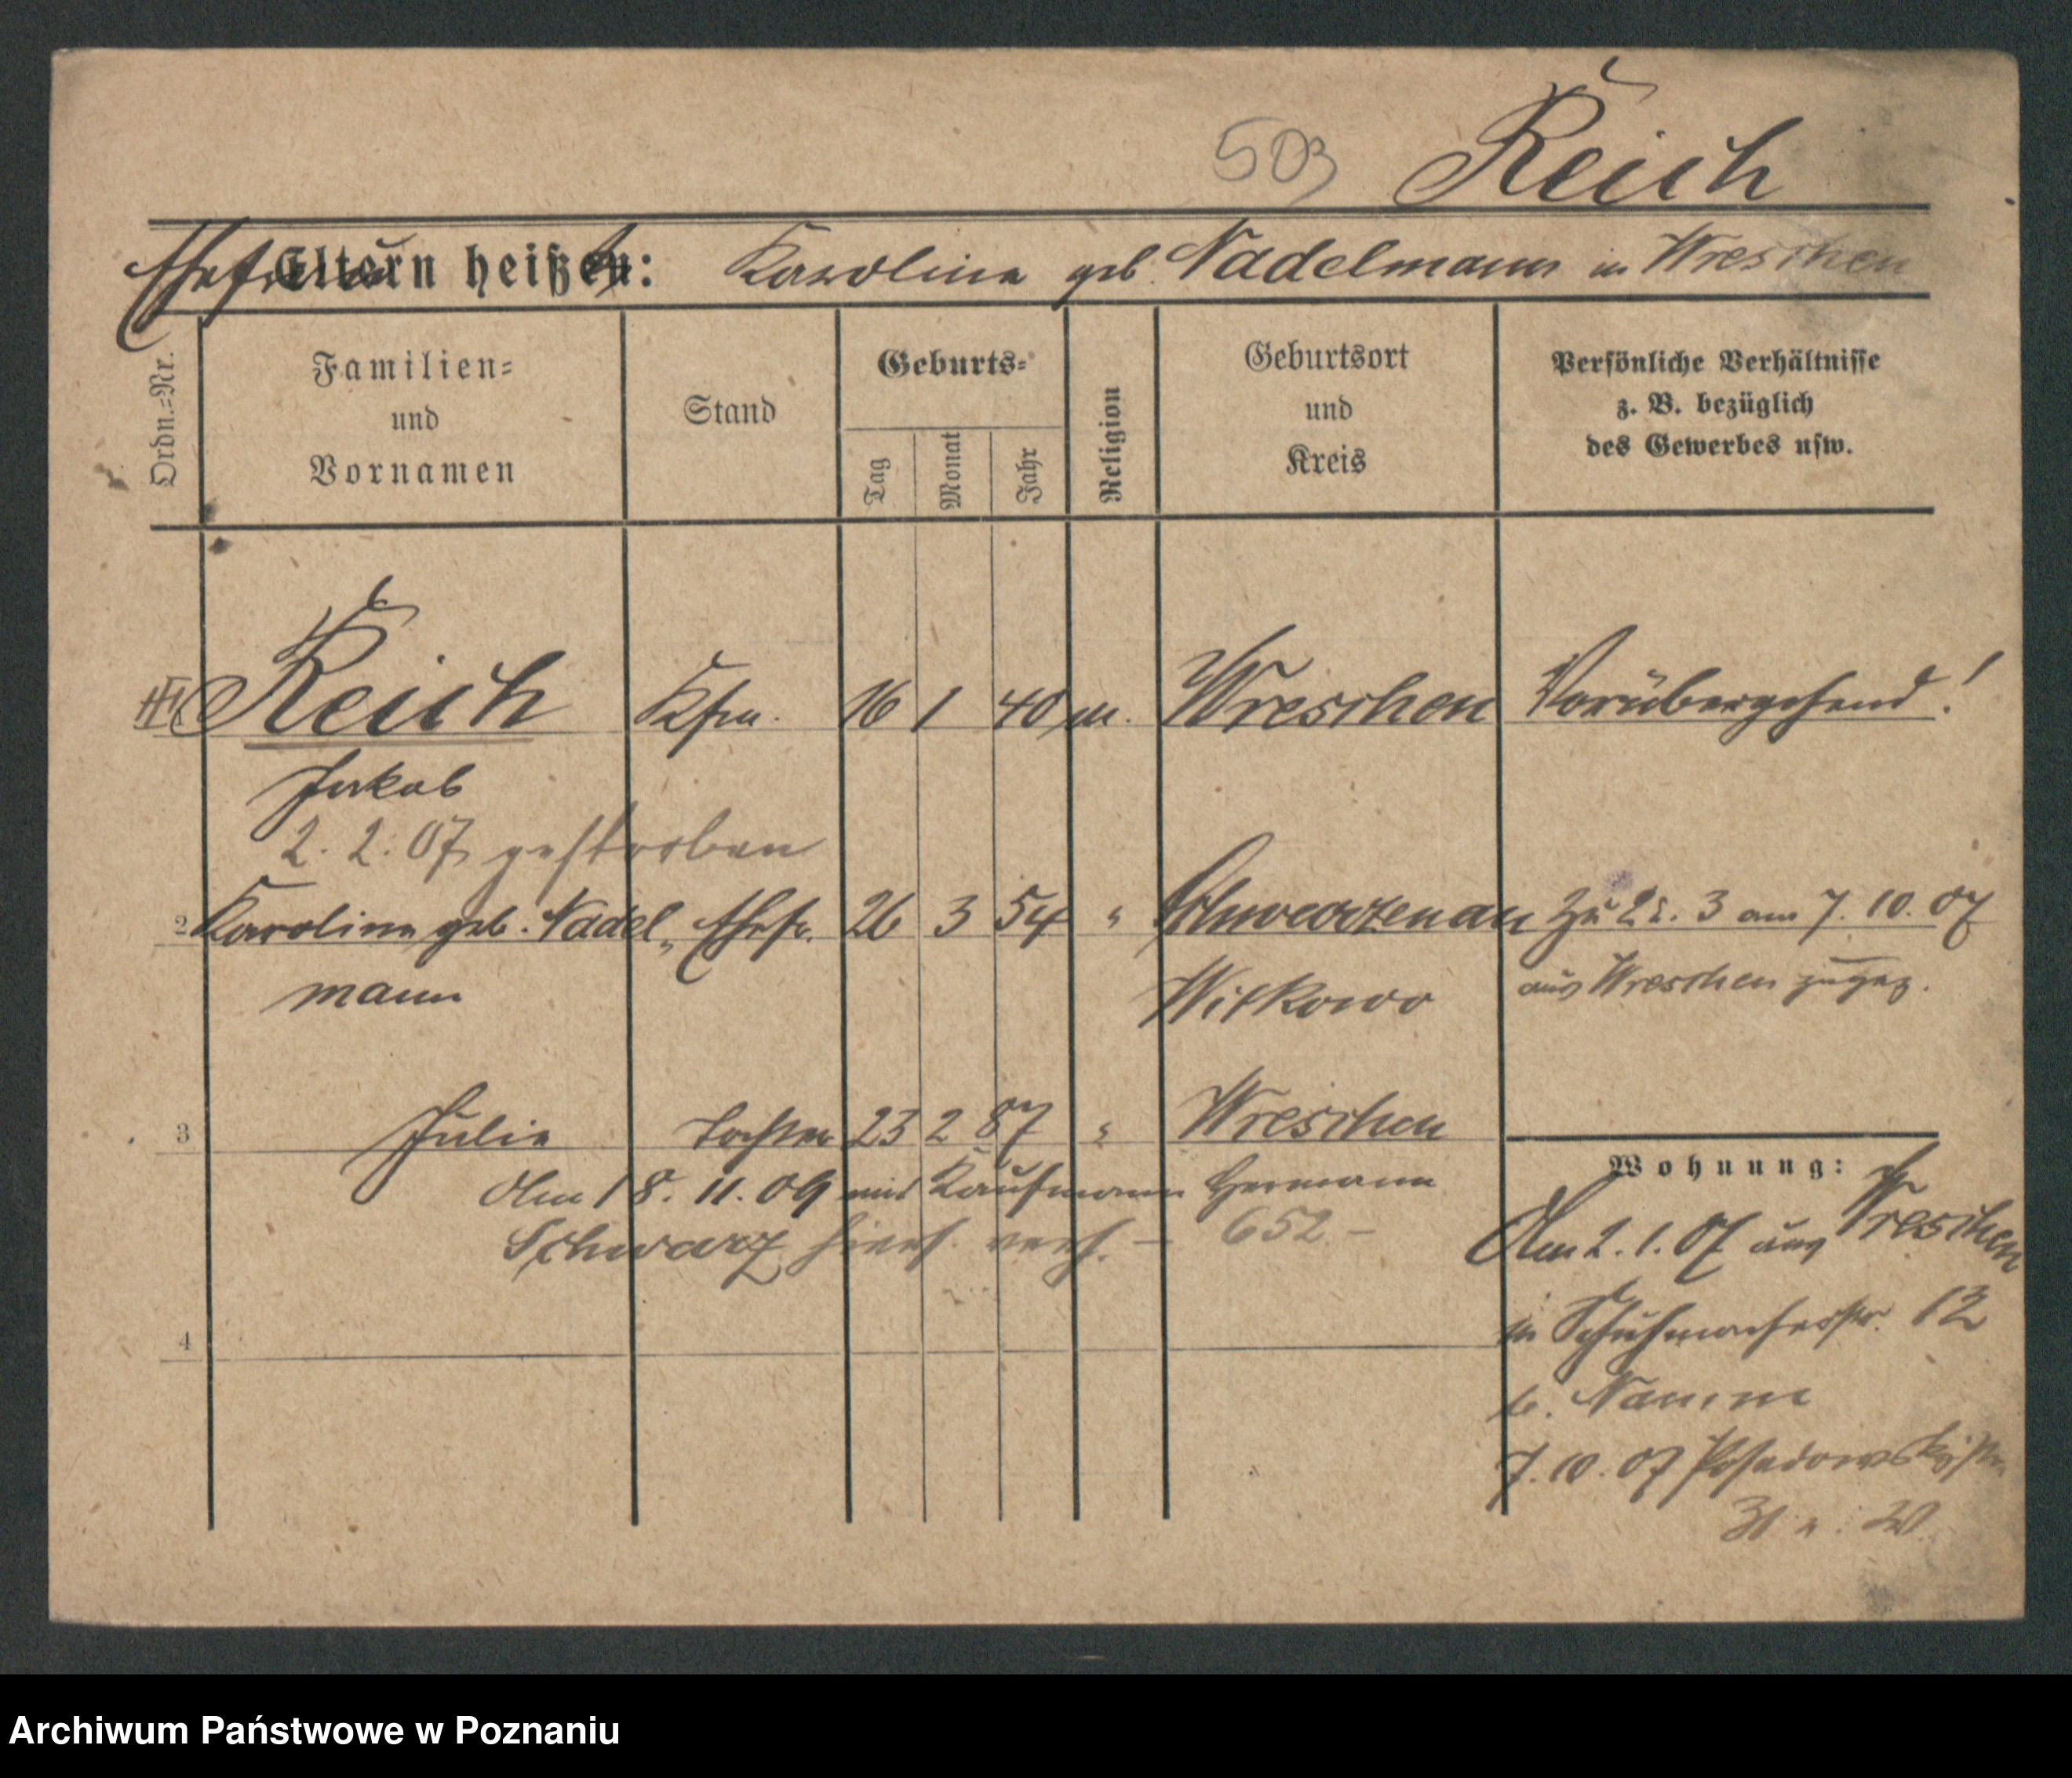 503 Reich
Ehefrau Eltern heißen: Karoline geb. Nadelmann in Wreschen
Ordn.=Nr.
Familien=
und
Vornamen
Stand
Geburts=
Tag
Monat
Jahr
Religion
Geburtsort
und
Kreis
Persönliche Verhältnisse
z. B. bezüglich
des Gewerbes usw.
Reich Kfm. 16 1 40 m. Wreschen Vorübergehend!
Jakob
2. 2. 07 gestorben
2 Karoline geb. Nadel„ Ehefr. 26 3 54 " Schwarzenau Zu 2 u. 3 am 7. 10. 07
mann Witkowo aus Wreschen zugez.
3 Julie Tochter 23 2 87 " Wreschen
Am 18. 11. 09 mit Kaufmann Hermann
Schwarz hiers. verh. – 652. –
4
Wohnung:
Am 2. 1. 07 aus Wreschen
in Schuhmacherstr. 12
b. Namm
7. 10. 07 Posadowskystr.
31
Archiwum Państwowe w Poznaniu